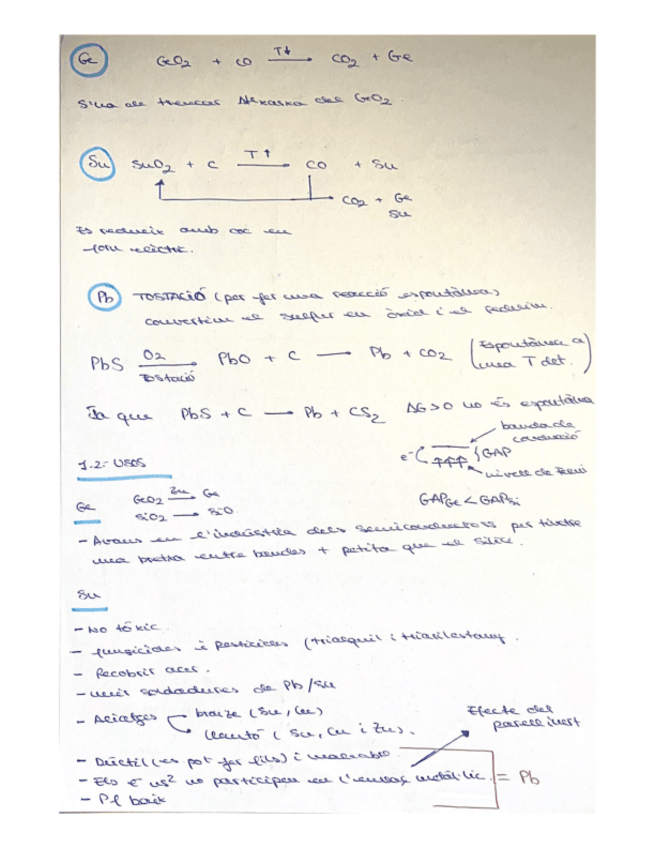 Ge GeO2 + CO T↓ → CO2 + Ge
S'ha de trencar del GeO2.
Sn SnO2 + C T↑ → CO + Sn
CO2 + Ge
Sn
Es redueix amb coc en
forn elèctric.
Pb TOSTACIÓ (per fer una reacció espontànea)
convertim el sulfur en òxid i el reduïm.
PbS O2 → Tostació PbO + C → Pb + CO2 (Espontànea a
una T det.)
Ja que PbS + C → Pb + CS2 ΔG>0 no és espontànea
banda de
conducció
e- GAP
nivell de Fermi
1.2.- USOS
Ge GeO2 Zn → Ge
SiO2 → SiO
GAPGe < GAPSi
- Avans en l'indústria dels semiconductors per tindre
una bretxa entre bandes + petita que el silici.
Sn
- No tòxic.
- fungicides i pesticides (triarquil i
- Recobrir acer.
- unir soldadures de Pb/Sn
- Aliatges bronze (Sn, Cu)
llautó (Sn, Cu i Zn).
Efecte del
parell inert
- Dúctil (es pot fer fils) i maleable.
- Els e- ns2 no participen en l'enllaç metàl·lic. = Pb
- Pf baix